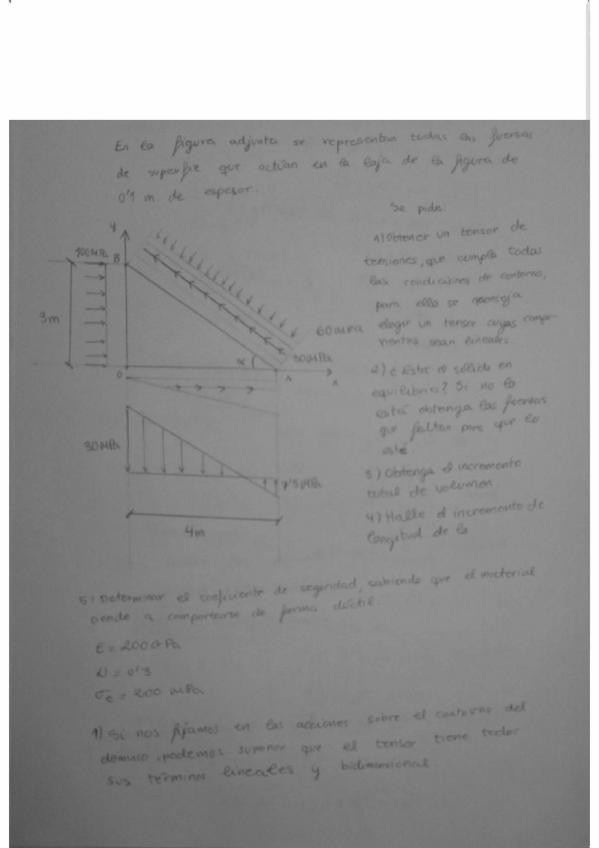 En la figura adjunta se representan todas las fuerzas
de superfice que actúan en la laja de la figura de
0'1 m de espesor.
Se pide:
1) Obtener un tensor de
tensiones, que cumpla todas
las condiciones de contorno,
para ello se aconseja
elegir un tensor cuyas compo-
nentes sean lineales.
2) ¿Está el sólido en
equilibrio? Si no lo
está obtenga las fuerzas
que faltan para que lo
esté.
3) Obtenga el incremento
total de volumen.
4) Halle el incremento de
longitud de la
y
100 MPa
B
3m
60 MPa
30 MPa
α
0
A
x
30 MPa
7'5 MPa
4m
5) Determinar el coeficiente de seguridad, sabiendo que el material
tiende a comportarse de forma dúctil.
E = 200 GPa
ν = 0'3
σe = 200 MPa
1) Si nos fijamos en las acciones sobre el contorno del
dominio, podemos suponer que el tensor tiene todos
sus términos lineales y bidimensional.